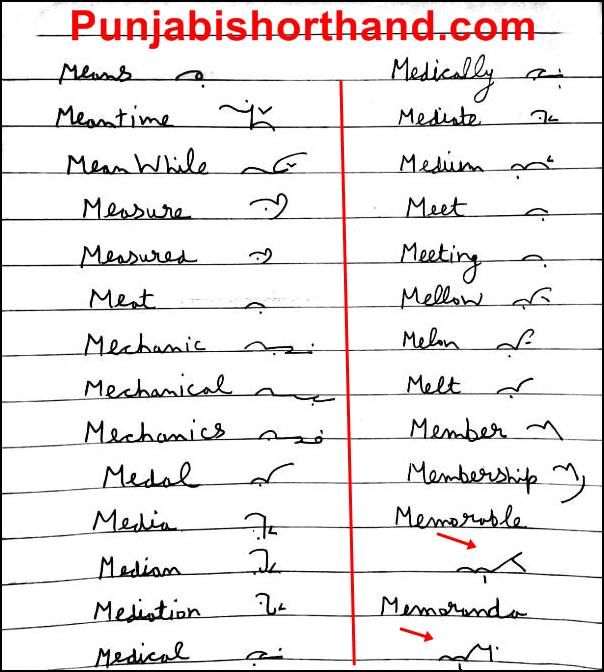 Punjabishorthand.com
Means
Meantime
Mean While
Measure
Measured
Meat
Mechanic
Mechanical
Mechanics
Medal
Media
Median
Mediation
Medical
Medically
Mediate
Medium
Meet
Meeting
Mellow
Melon
Melt
Member
Membership
Memorable
Memoranda